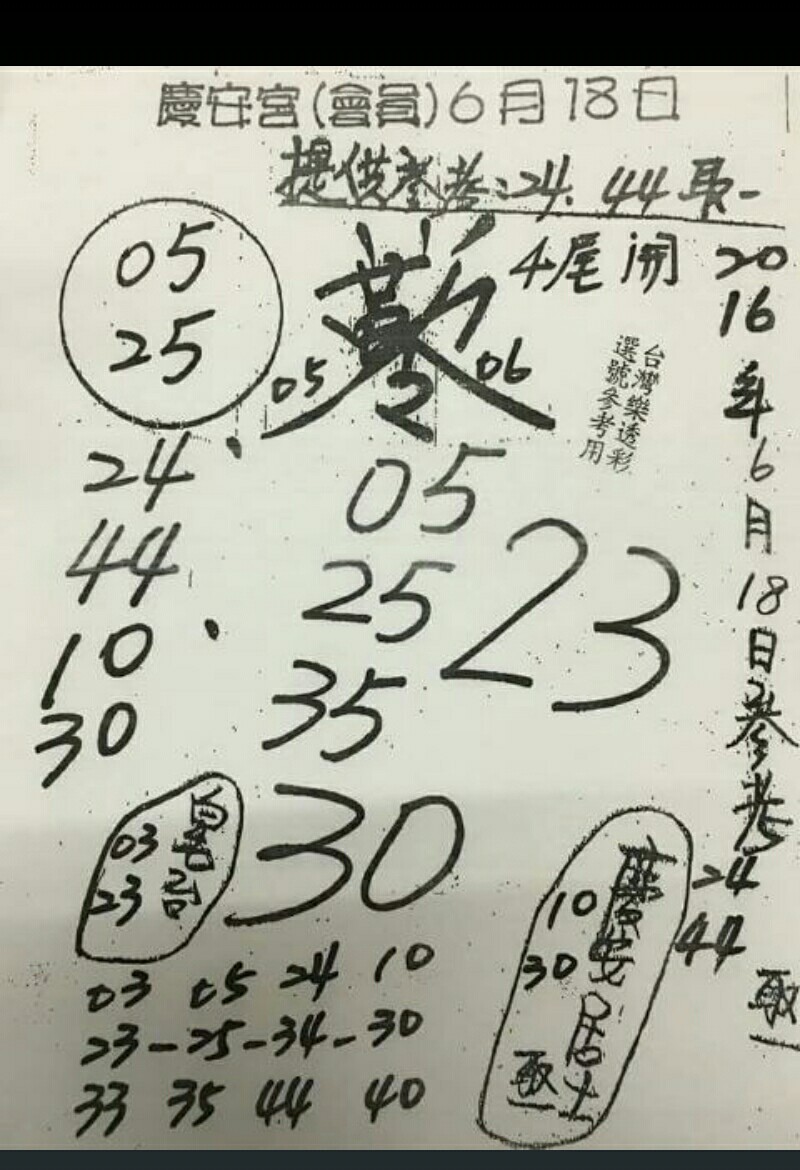 慶安宮(會員)6月18日
提供參考:24.44取一
4尾開
05
25
05
06
台灣樂透彩
選號參考用
2016年6月18日參考
24
44
取一
24
44
10
30
05
25
35
23
30
03
23
10
30
慶安居士
取一
03 05 24 10
23-25-34-30
33 35 44 40